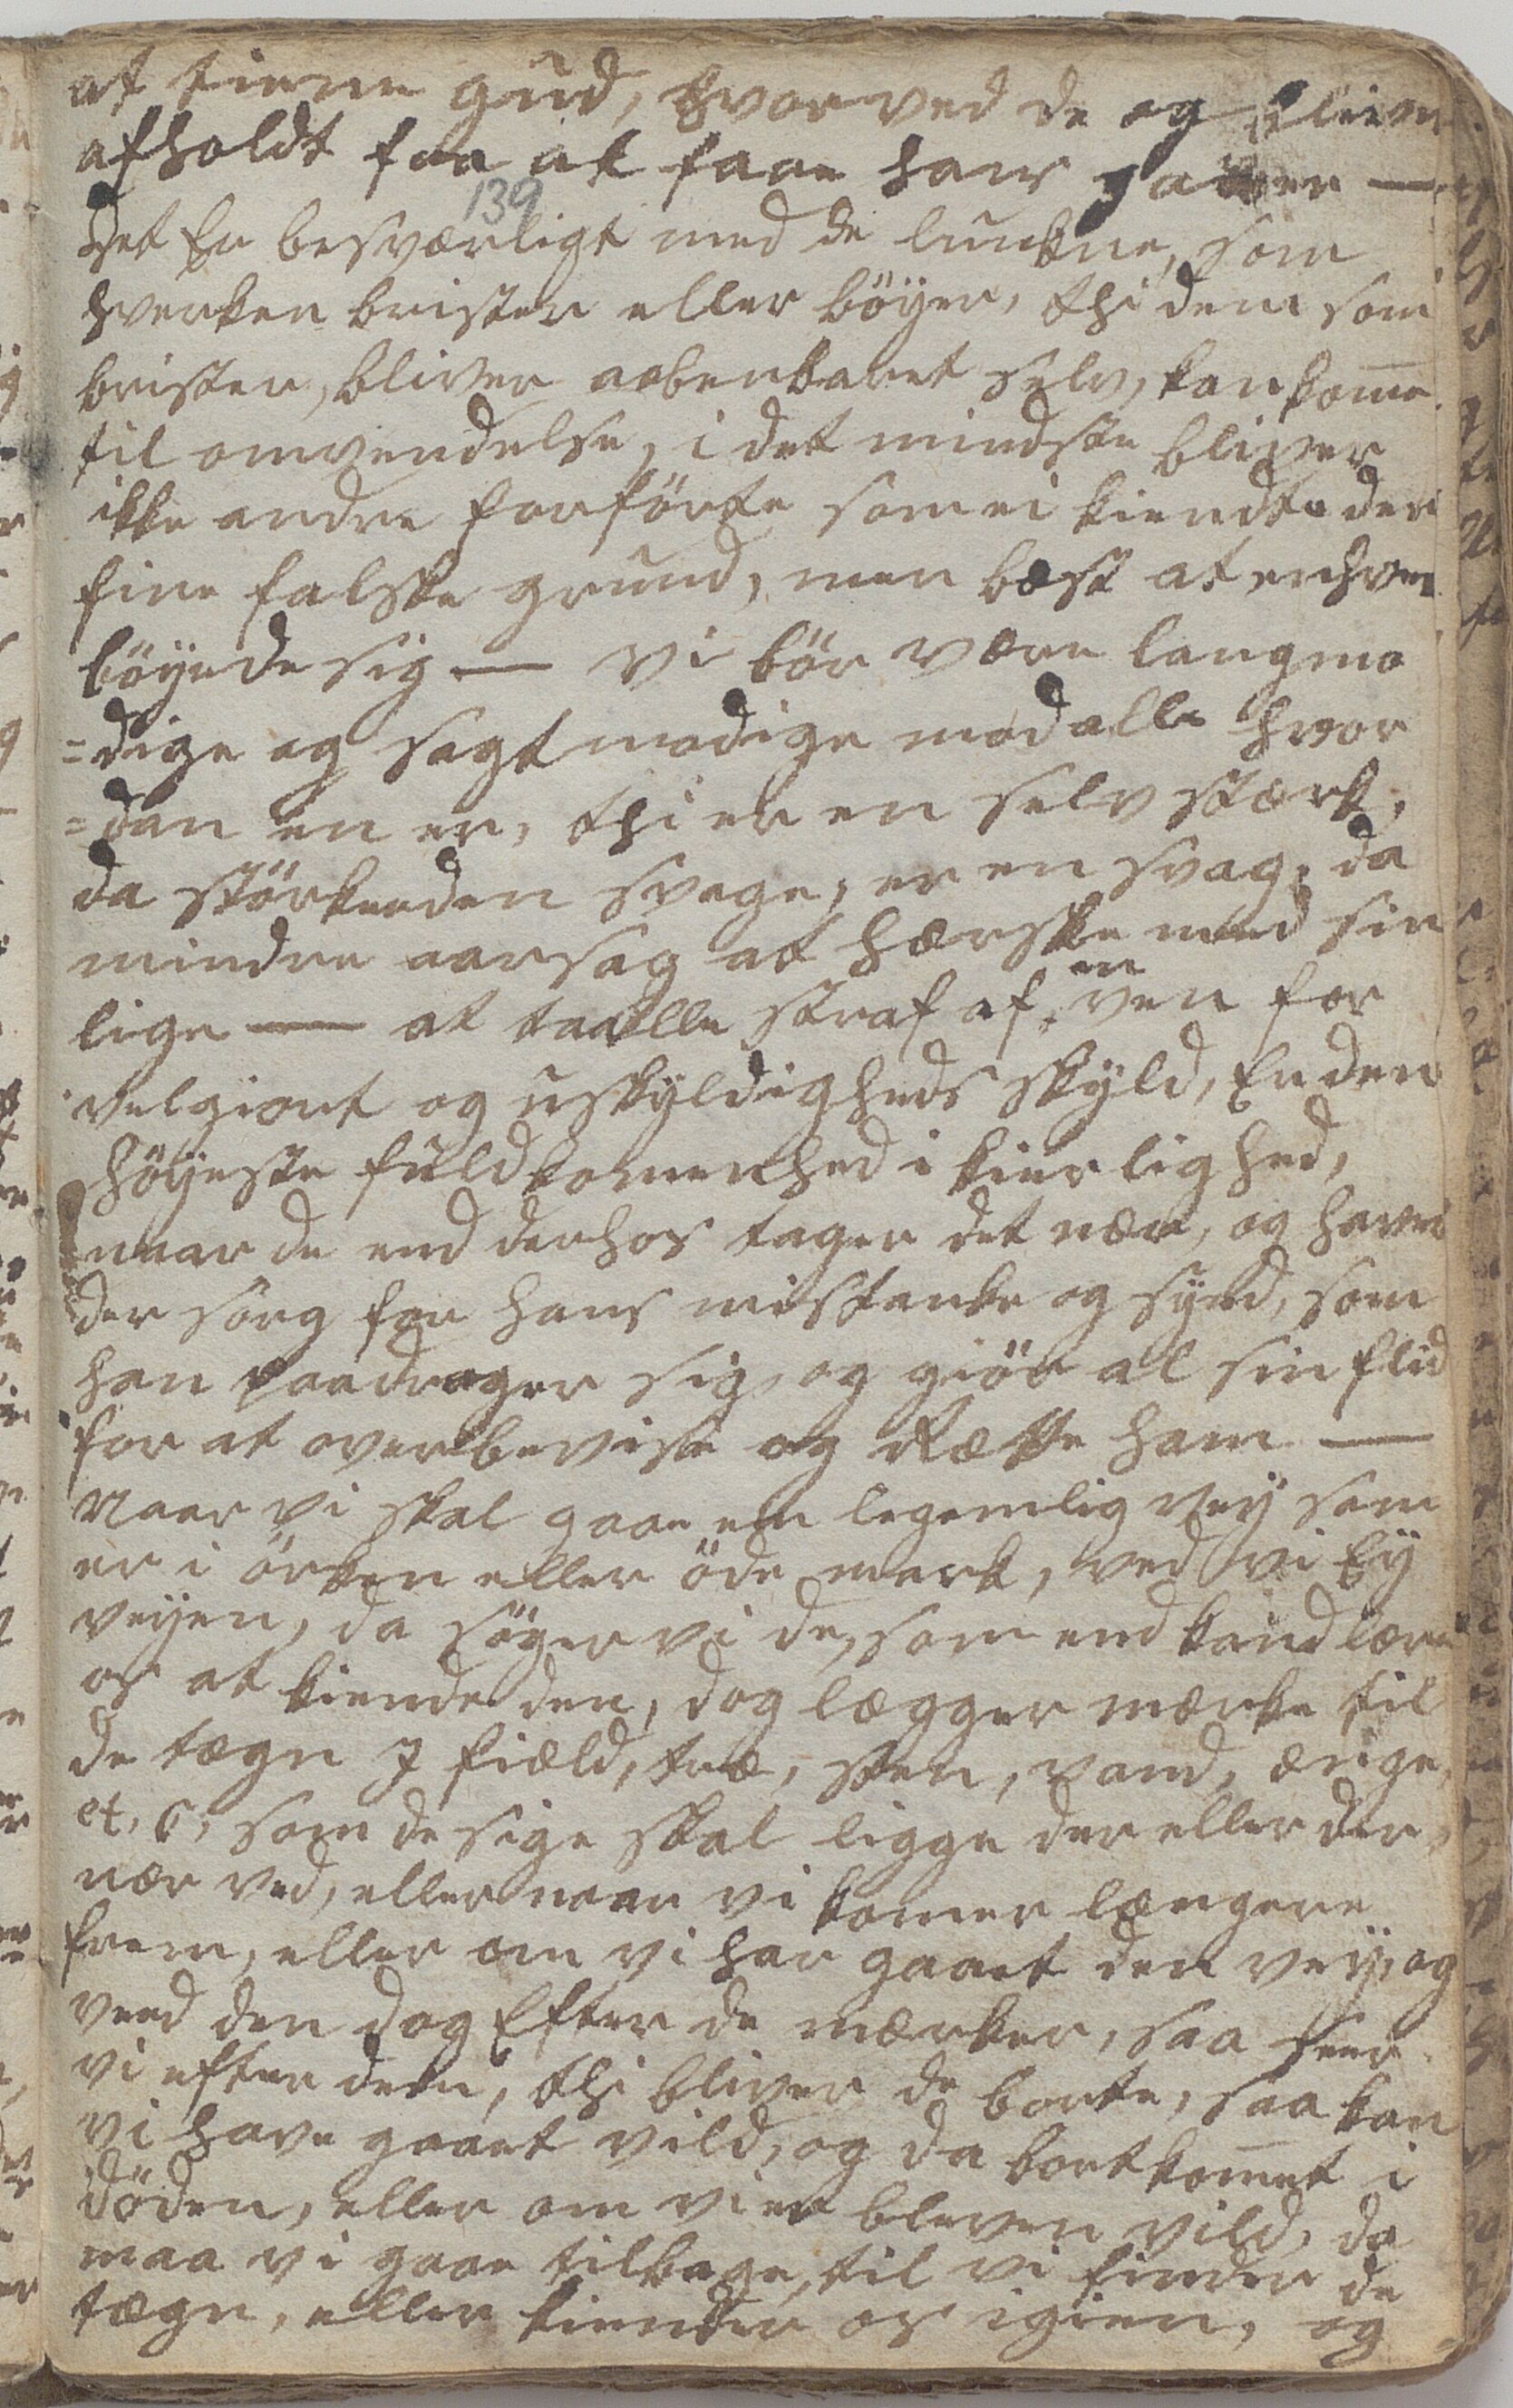 at tiene gud, hvor ved de og bliver
afholdt fra at faae hans gaver —
139
Det Er besværligt med de lunkne, som
hverken brister eller böyer, thi dem som
brister, bliver aabenbaret selv, kan kom̅e
til omvendelse, i det mindste bliver
ikke andre forförte som ei kiendte den
fine falske grund, men bæst at enhver
böyede sig — Vi bör være langmo
=dige og sagtmodige mod alle hvor
=dan en er, thi er en selv stærk,
da störke den svage, er en svag, da
mindre aarsag at hærske med sin
lige — at taalle straf af en ven for
velgiort og uskyldigheds skyld, Er den
höyeste fuldkomenhed i kierlighed,
naar de end derhos tager det nær, og haver
der sorg for hans mistanke og synd, som
han paadrager sig, og giör al sin flid
for at overbevise og Rætte ham —
Naar vi skal gaae en legemlig vey som
er i örken eller öde mark, ved vi Ey
veyen, da söger vi de, som end kand lære
os at kiende den, dog lægger mærke til
de tægn I fiæld, træ, sten, vand, ænge,
et, c, som de sige skal ligge der eller der,
nær ved, eller naar vi komer længere
frem, eller om vi har gaaet den vey, og
veed den dog Efter de mærker, saa seer
vi efter dem, thi bliver de borte, saa kan
vi have gaaet vild, og da bortkom̅et i
döden, eller om vi er bleven vild, da
maa vi gaae tilbage, til vi finder de
tægn, eller kiender os igien, og